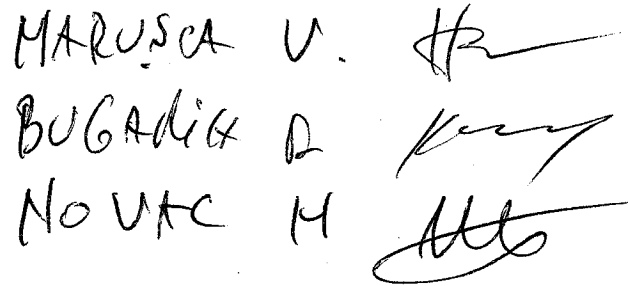 MARUȘCA V.
BUGARICH R
NOVAC M